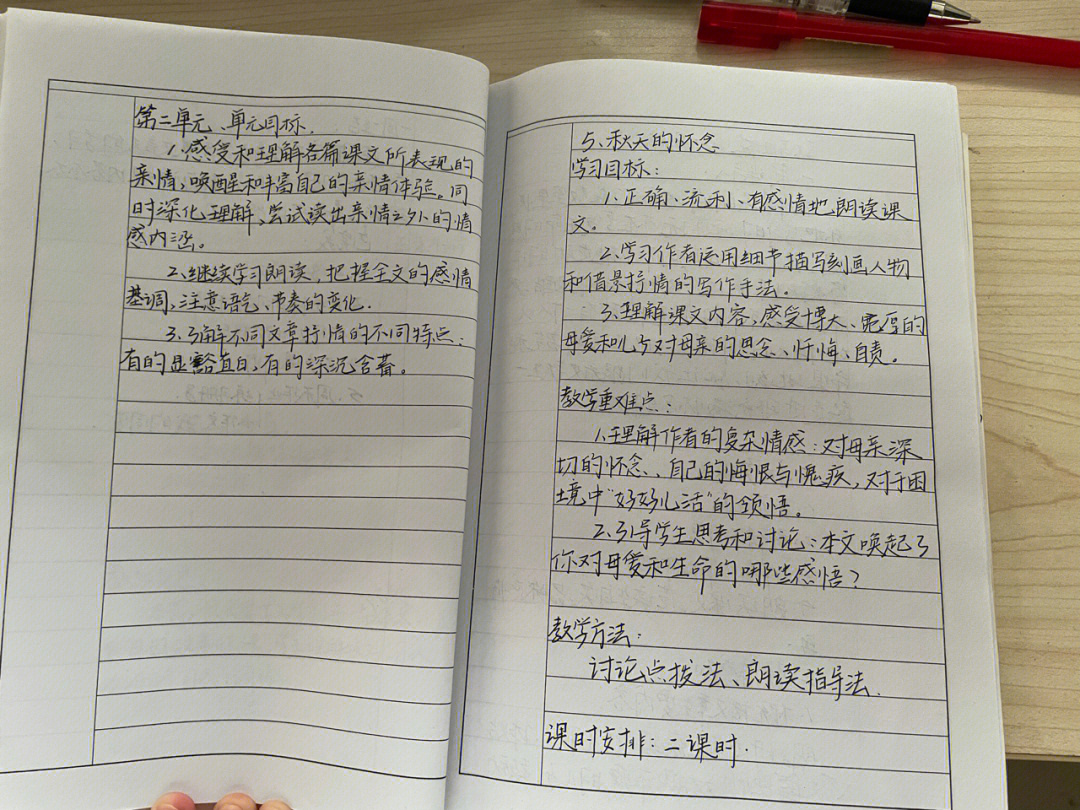 第二单元、单元目标.
1.感受和理解各篇课文所表现的
亲情,唤醒和丰富自己的亲情体验。同
时深化理解、尝试读出亲情之外的情
感内涵。
2.继续学习朗读,把握全文的感情
基调,注意语气、节奏的变化.
3.了解不同文章抒情的不同特点:
有的显豁直白,有的深沉含蓄。
5、秋天的怀念
学习目标:
1、正确、流利、有感情地朗读课
文。
2、学习作者运用细节描写刻画人物
和借景抒情的写作手法.
3、理解课文内容,感受博大、宽厚的
母爱和儿子对母亲的思念、忏悔、自责。
教学重难点:
1.理解作者的复杂情感:对母亲深
切的怀念、自己的悔恨与愧疚,对于困
境中“好好儿活”的领悟。
2.引导学生思考和讨论:本文唤起了
你对母爱和生命的哪些感悟?
教学方法:
讨论点拨法、朗读指导法.
课时安排:二课时.